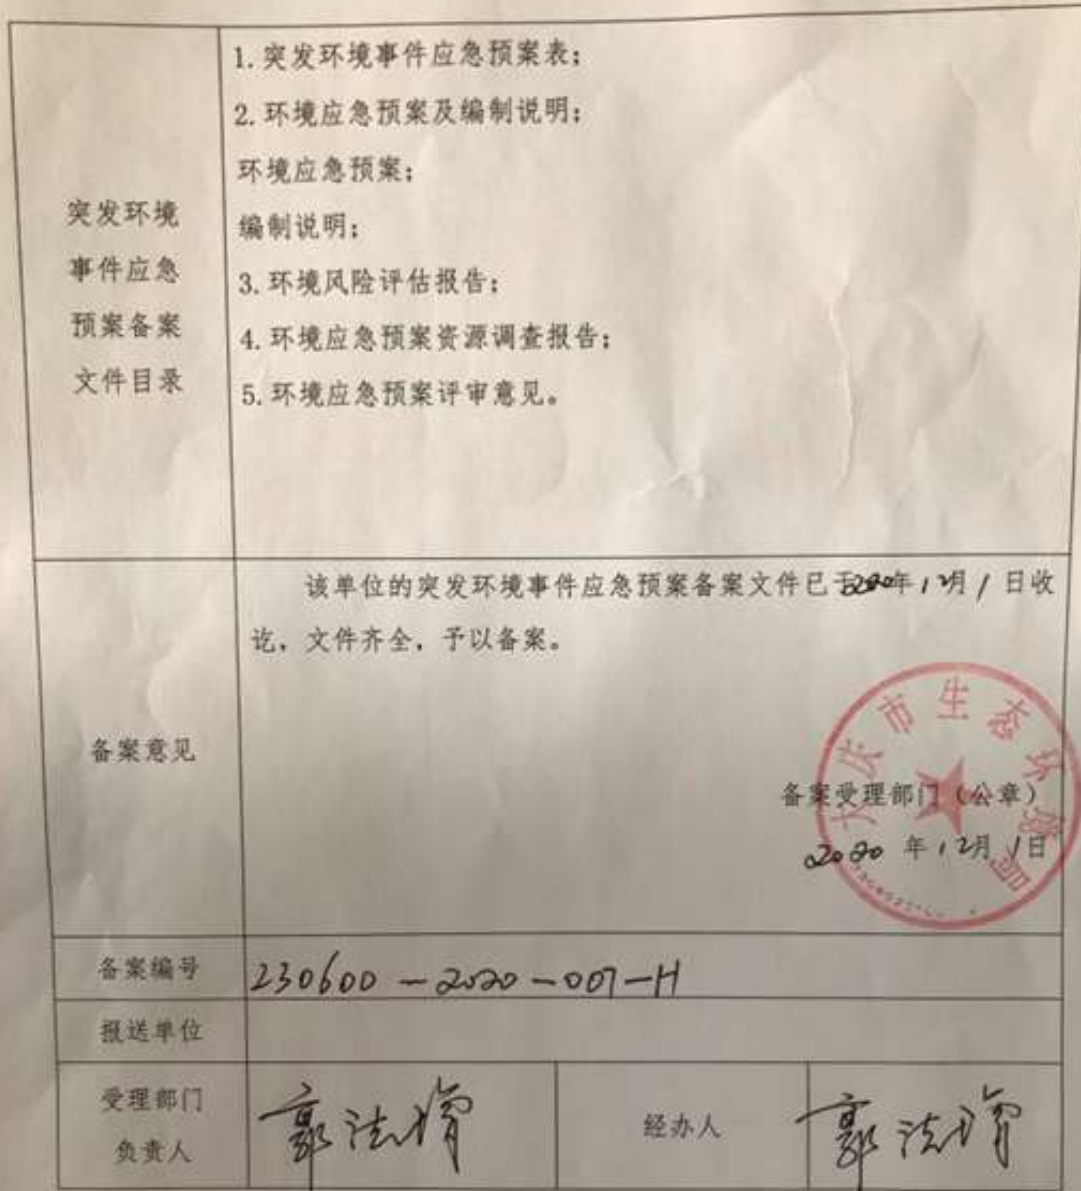 突发环境
事件应急
预案备案
文件目录
1.突发环境事件应急预案表；
2.环境应急预案及编制说明；
环境应急预案；
编制说明；
3.环境风险评估报告；
4.环境应急预案资源调查报告；
5.环境应急预案评审意见。
备案意见
该单位的突发环境事件应急预案备案文件已于2020年12月1日收
讫，文件齐全，予以备案。
大庆市生态环境局
备案受理部门（公章）
2020年12月1日
备案编号
230600-2020-007-H
报送单位
受理部门
负责人
郭法
经办人
郭法